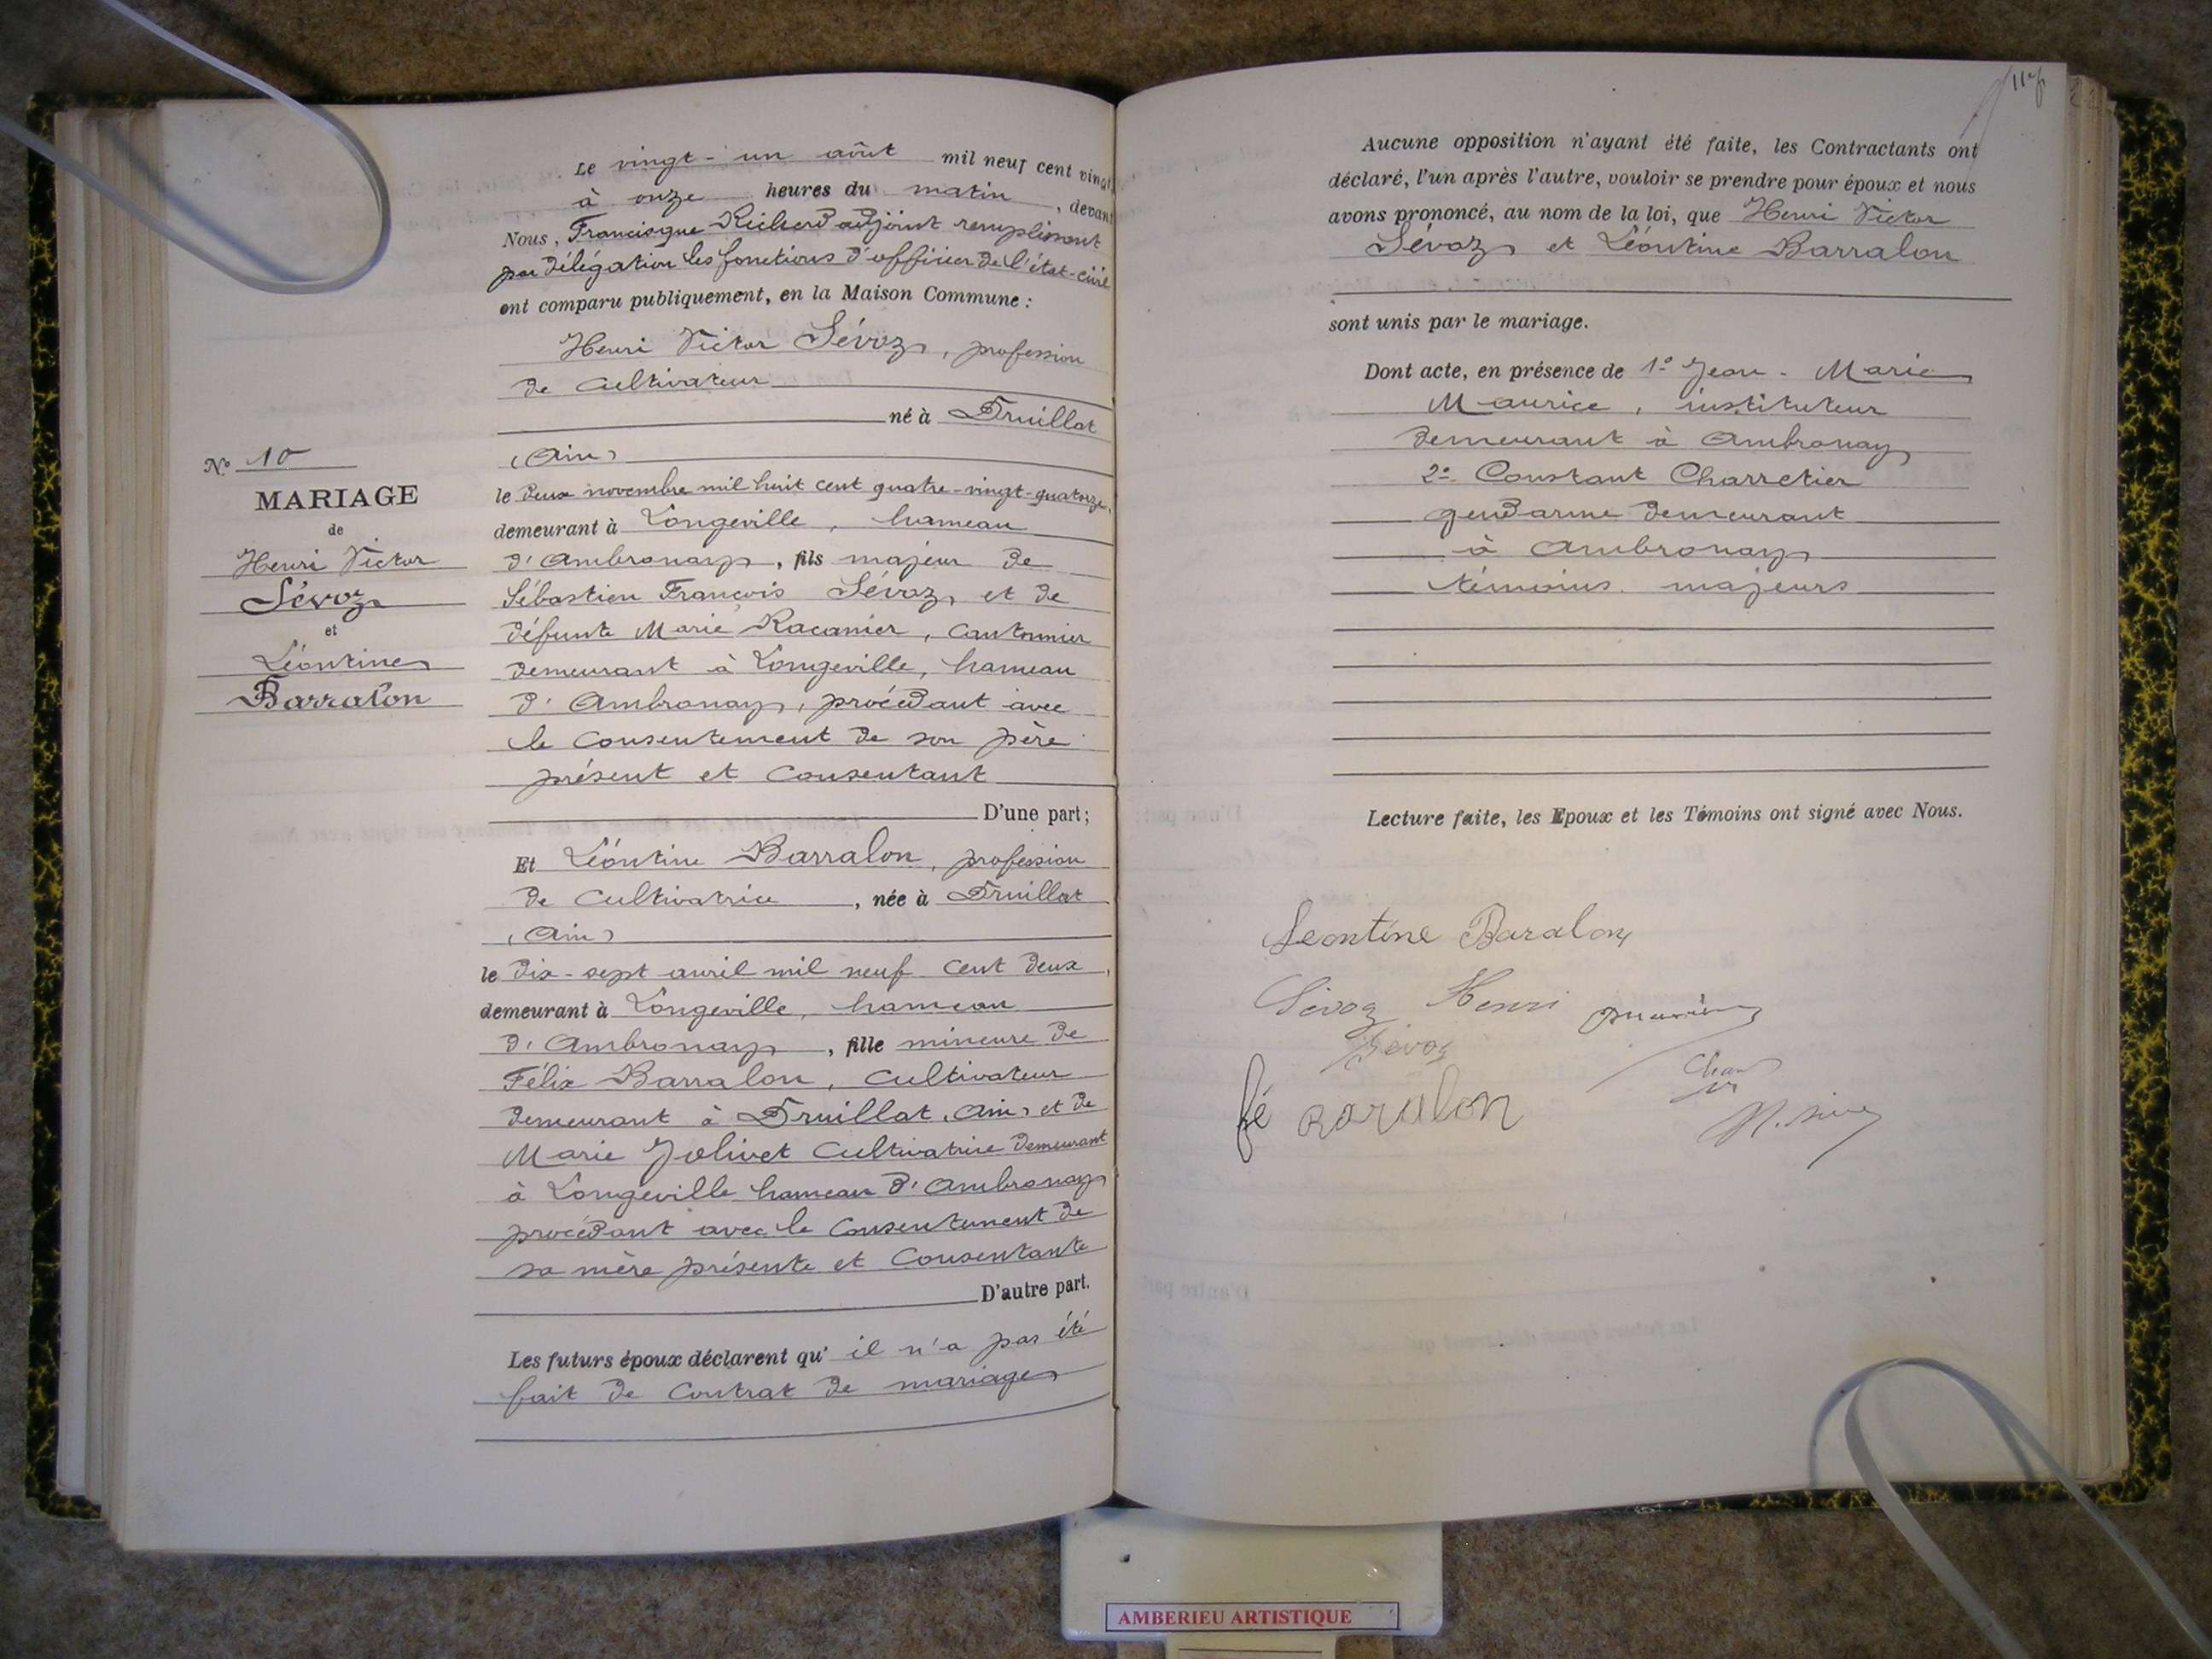 Le vingt-un août mil neuf cent vingt
à onze heures du matin, devant
Nous, Francisque Richerd adjoint remplissant
par délégation les fonctions d'officier de l'état-civil
ont comparu publiquement, en la Maison Commune :
Henri Victor Sévoz, profession
de cultivateur
né à Druillat
(Ain)
le deux novembre mil huit cent quatre-vingt-quatorze,
demeurant à Longeville, hameau
d'Ambronay, fils majeur de
Sébastien François Sévoz, et de
défunte Marie Racanier, Cantonnier
demeurant à Longeville, hameau
d'Ambronay, procédant avec
le consentement de son père
présent et consentant
D'une part;
Et Léontine Barralon, profession
de cultivatrice, née à Druillat
(Ain)
le dix-sept avril mil neuf cent deux,
demeurant à Longeville, hameau
d'Ambronay, fille mineure de
Félix Barralon, cultivateur
demeurant à Druillat (Ain) et de
Marie Jolivet Cultivatrice demeurant
à Longeville hameau d'Ambronay
procédant avec le Consentement de
sa mère présente et Consentante
D'autre part.
Les futurs époux déclarent qu'il n'a pas été
fait de Contrat de mariage
N° 10
MARIAGE
de
Henri Victor
Sévoz
et
Léontine
Barralon
Aucune opposition n'ayant été faite, les Contractants ont
déclaré, l'un après l'autre, vouloir se prendre pour époux et nous
avons prononcé, au nom de la loi, que Henri Victor
Sévoz et Léontine Barralon
sont unis par le mariage.
Dont acte, en présence de 1° Jean-Marie
Maurice, instituteur
demeurant à Ambronay
2° Constant Charretier
gendarme demeurant
à Ambronay
témoins majeurs
Lecture faite, les Epoux et les Témoins ont signé avec Nous.
Leontine Baralon
Sévoz Henri
Sévoz
fé Baralon
AMBERIEU ARTISTIQUE